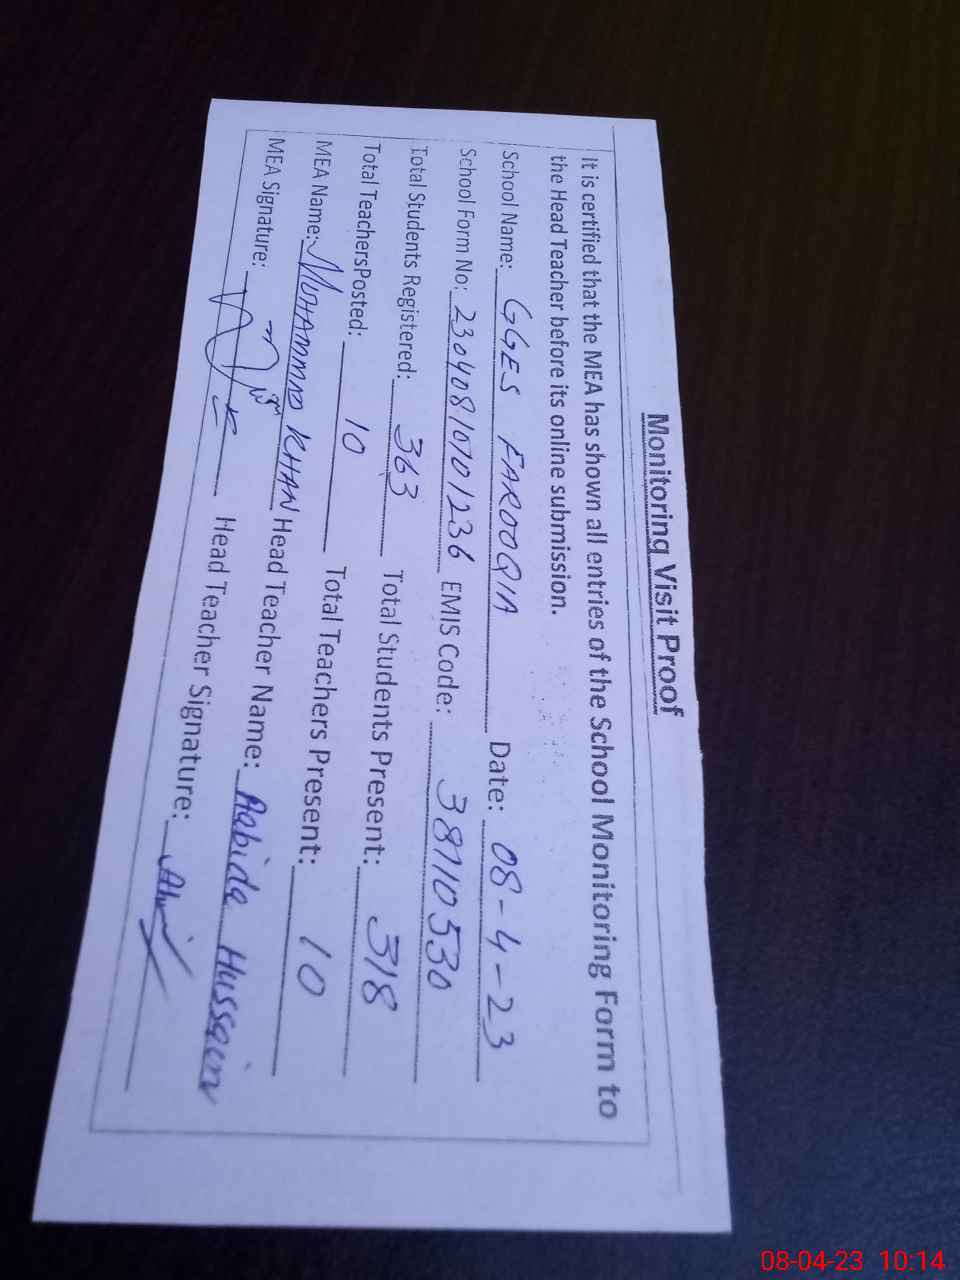 Monitoring Visit Proof
It is certified that the MEA has shown all entries of the School Monitoring Form to
the Head Teacher before its online submission.
School Name: GGES FAROOQIA Date: 08-4-23
School Form No: 23040810701236 EMIS Code: 38110530
Total Students Registered: 363 Total Students Present: 318
Total TeachersPosted: 10 Total Teachers Present: 10
MEA Name: MUHAMMAD KHAN Head Teacher Name: Aabida Hussain
MEA Signature: Head Teacher Signature:
08-04-23 10:14